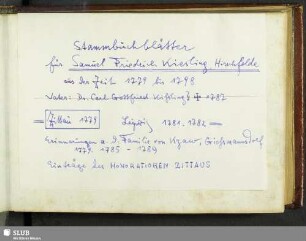 Stammbuchblätter
für Samuel Friedrich Kiesling, Hirschfelde
aus der Zeit 1779 bis 1798
Vater: Dr. Carl Gottfried Kißling ✝ 1787
Mai 1779 Leipzig 1781. 1782
Erinnerungen a. d. Familie von Kyaw,
1779. 1785 - 1789
Einträge der HONORATIOREN ZITTAUS
SLUB